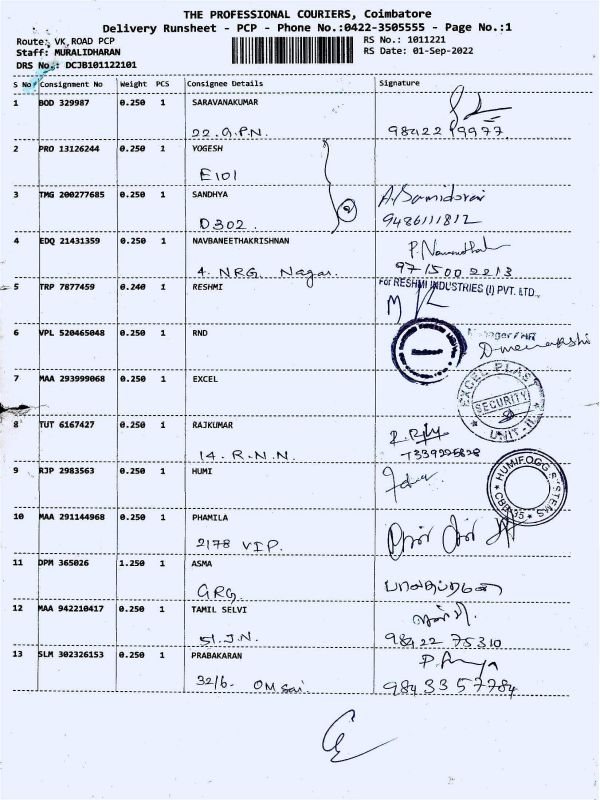 THE PROFESSIONAL COURIERS, Coimbatore
Delivery Runsheet - PCP - Phone No.:0422-3505555 - Page No.:1
Route: VK ROAD PCP
RS No.: 1011221
Staff: MURALIDHARAN
RS Date: 01-Sep-2022
DRS No.: DCJB101122101
S No Consignment No Weight PCS Consignee Details Signature
1 BOD 329987 0.250 1 SARAVANAKUMAR
22. G.P.N. 98422 19977
2 PRO 13126244 0.250 1 YOGESH
E101
3 TMG 200277685 0.250 1 SANDHYA
D302 2 9486111812
4 EDQ 21431359 0.250 1 NAVBANEETHAKRISHNAN
4. NRG. Nagar. 97 15002213
5 TRP 7877459 0.240 1 RESHMI For RESHMI INDUSTRIES (I) PVT. LTD.,
Manager / HR
6 VPL 520465048 0.250 1 RND
7 MAA 293999068 0.250 1 EXCEL EXCEL PLAST SECURITY UNIT - II
8 TUT 6167427 0.250 1 RAJKUMAR
14. R.N.N.
9 RJP 2983563 0.250 1 HUMI HUMIFOGG SYSTEMS CBE-35
10 MAA 291144968 0.250 1 PHAMILA
2178 VIP.
11 DPM 365026 1.250 1 ASMA
GRG.
12 MAA 942210417 0.250 1 TAMIL SELVI
51. J.N. 98422 75310
13 SLM 302326153 0.250 1 PRABAKARAN
32/6. OM Sai. 9843357784